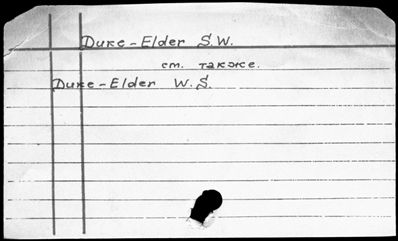 Duke-Elder S.W.
см. также.
Duke-Elder W.S.